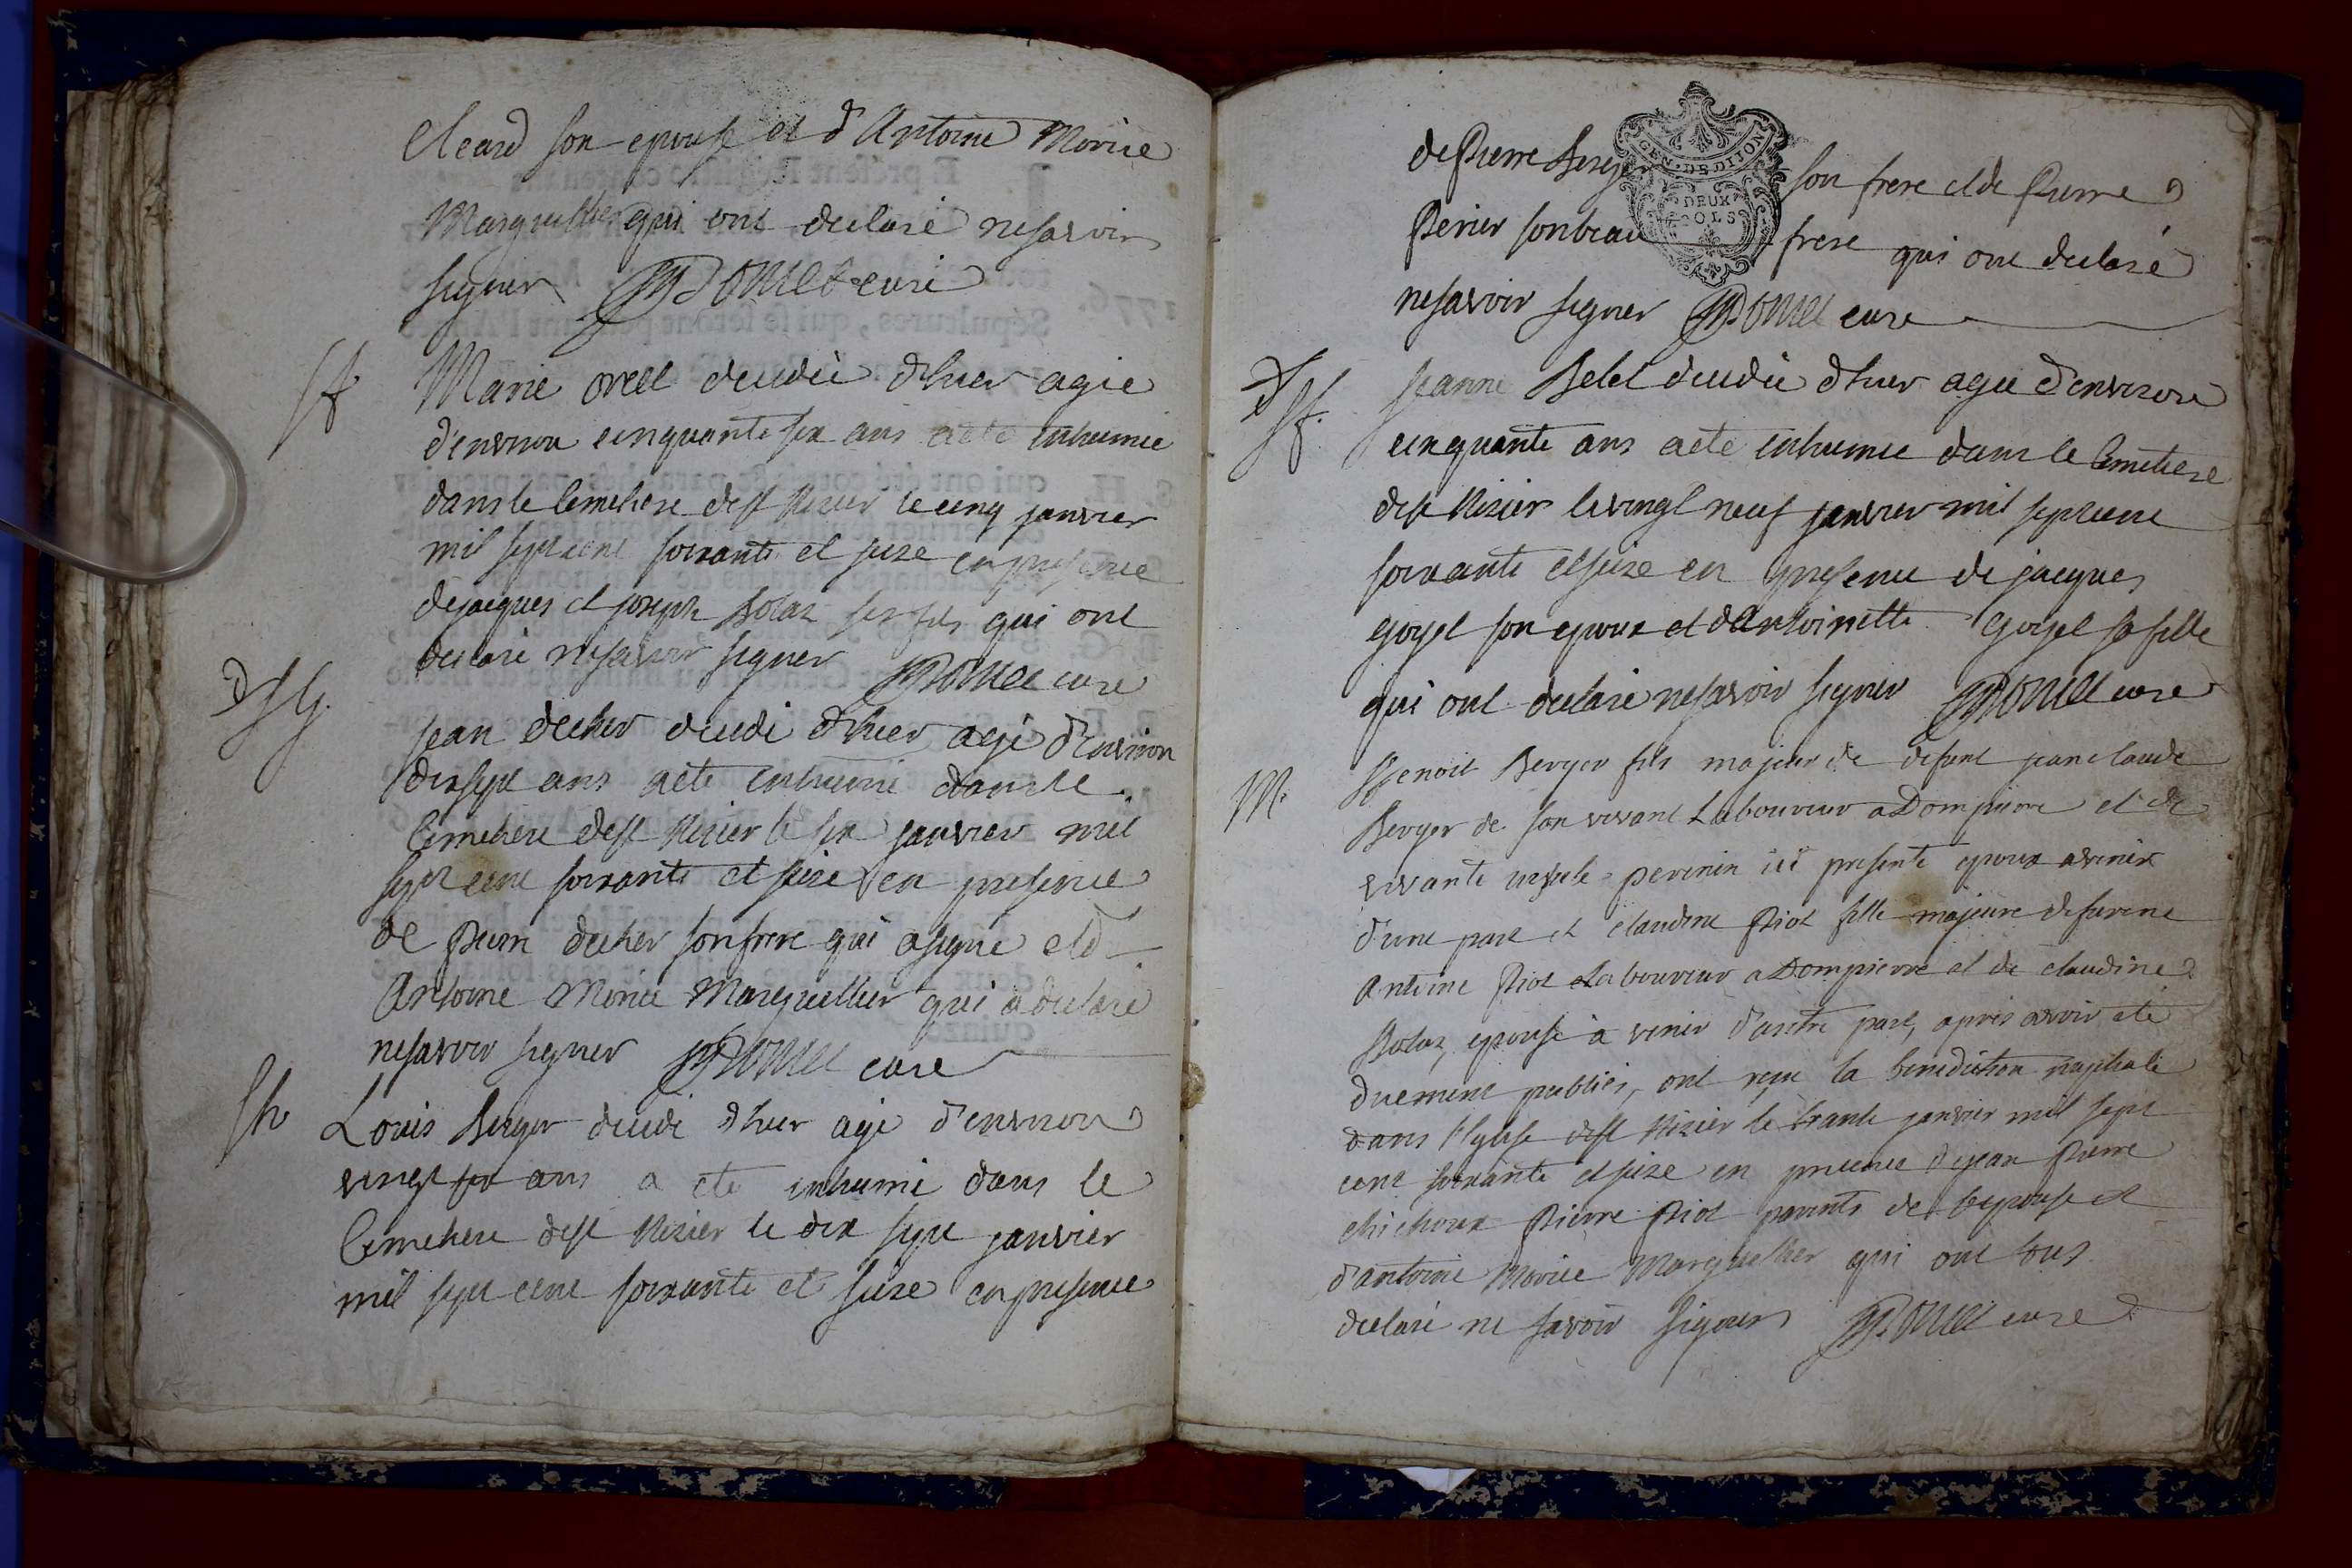 Cleard son epouse et d'Antoine Morice
Marguellier qui ont declaré nesavoir
signer curé
Marie decedeé d'hier ageé
d'environ cinquante six ans aeté inhumée
dansle Cemetiere dest Nizier le cinq janvier
mil septcent soixante et seize en presence
dejacques et joseph ses fils qui ont
declaré nesavoir signer curé
jean decher decedé d'hier agé d'environ
dixsept ans aeté inhumé dansle
Cemetiere dest Nizier le six janvier mil
sept cent soixante et seize en presence
de pierre decher sonfrere qui asigné et d
Antoine Morice Marguellier qui a declaré
nesavoir signer curé
Louis Berger decedé d'hier agé d'environ
vingt six ans a eté inhumé dans le
Cemetiere dest Nizier le dix sept janvier
mil sept cent soixante et seize en presence
dePierre Berger son frere et de Pierre
Perier sonbeau frere qui ont declaré
nesavoir signer curé
GEN. DE DIJON
DEUX
SOLS
jeanne decedeé d'hier ageé d'environ
cinquante ans aeté inhumeé dans le Cemetiere
dest Nizier levingt neuf janvier mil septcent
soixante etseize en presence de jacques
goyet son epoux et d'Antoinette Goyet sa fille
qui ont declaré nesavoir signer curé
M.
Benoit Berger fils majeur de defunt jeanclaude
Berger de son vivant Laboureur aDompierre et de
vivante perenin ici presente epoux avenir
d'une part et claudine Riot fille majeure defunt
Antoine Riot Laboureur aDompierre et de claudine
epouse à venir d'autre part, après avoir eté
duement publiés, ont reçu la benediction nuptiale
dans l'Eglise dest Nizier le trente janvier mil sept
cent soixante etseize en presence dejean Pierre
chichoux Pierre Riot parents de l'epouse et
d'antoine Morice Marguellier qui ont tous
declaré ne savoir signer curé